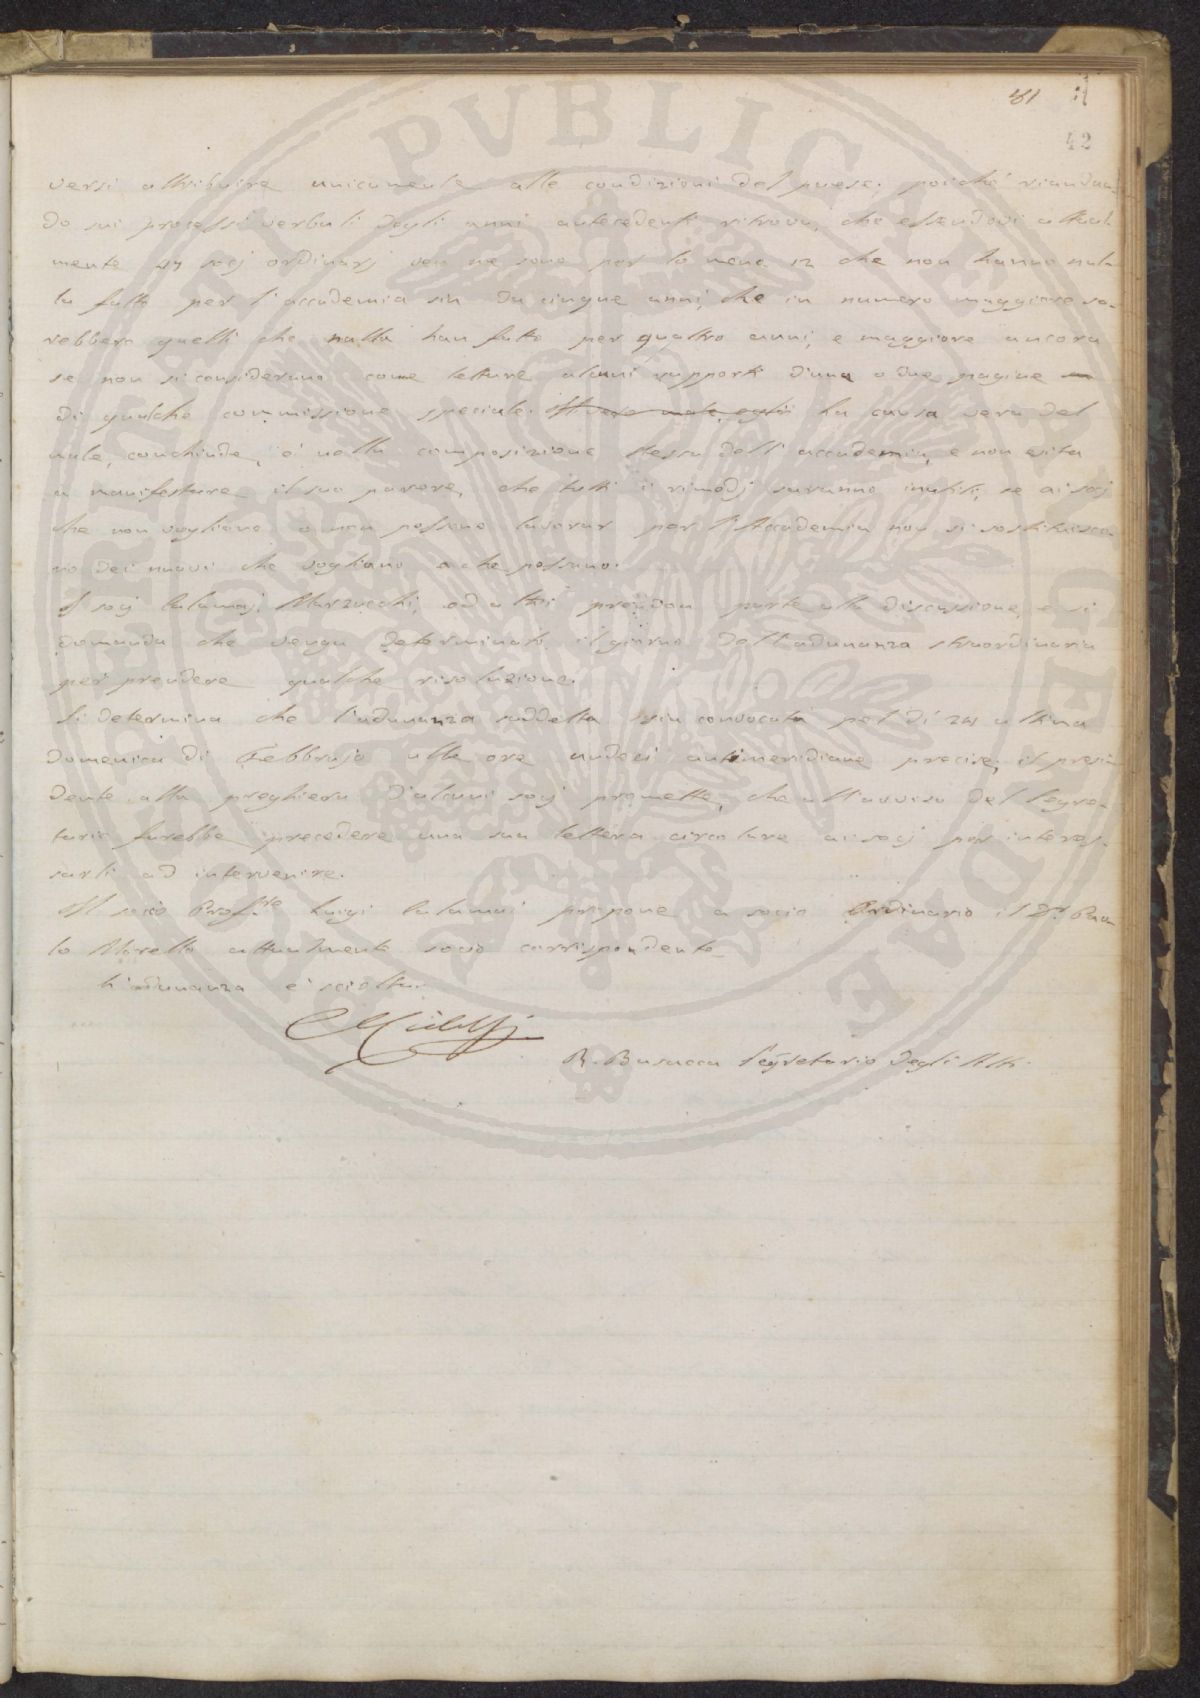 41
42
versi attribuire unicamente alle condizioni del paese; poiché riandan-
do sui processi verbali degli anni antecedenti ritrova, che essendovi attual-
mente 47 socj ordinarj ve ne sono per lo meno 12 che non hanno nul-
la fatto per l'accademia sin da cinque anni, che in numero maggiore sa-
rebbero quelli che nulla han fatto per quattro anni, e maggiore ancora
se non si considerano come letture alcuni rapporti d'una o due pagine
di qualche commissione speciale. la causa vera del
male, conchiude, è nella composizione stessa dell'accademia, e non esita
a manifestare il suo parere, che tutti i rimedj saranno inutili, se ai socj
che non vogliono o non possono lavorar per l'Accademia non si sostituisca-
no dei nuovi che vogliano e che possano.
I socj Calamaj, Marzucchi, ed altri prendon parte alla discussione, e si
domanda che venga determinato il giorno dell'adunanza straordinaria
per prendere qualche risoluzione.
Si determina che l'adunanza suddetta sia convocata pel dí ultima
domenica di Febbrajo alle ore undeci antimeridiane precise; il presi-
dente alla preghiera d'alcuni socj promette, che all'avviso del Segre-
tario farebbe precedere una sua lettera circolare ai socj per interes-
sarli ad intervenire.
Il socio Prof.re Luigi Calamai propone a socio Ordinario il Dr. Pao-
lo Morello attualmente socio corrispondente
L'adunanza è sciolta.
R. Busacca Segretario degli Atti.
PVBLICAE